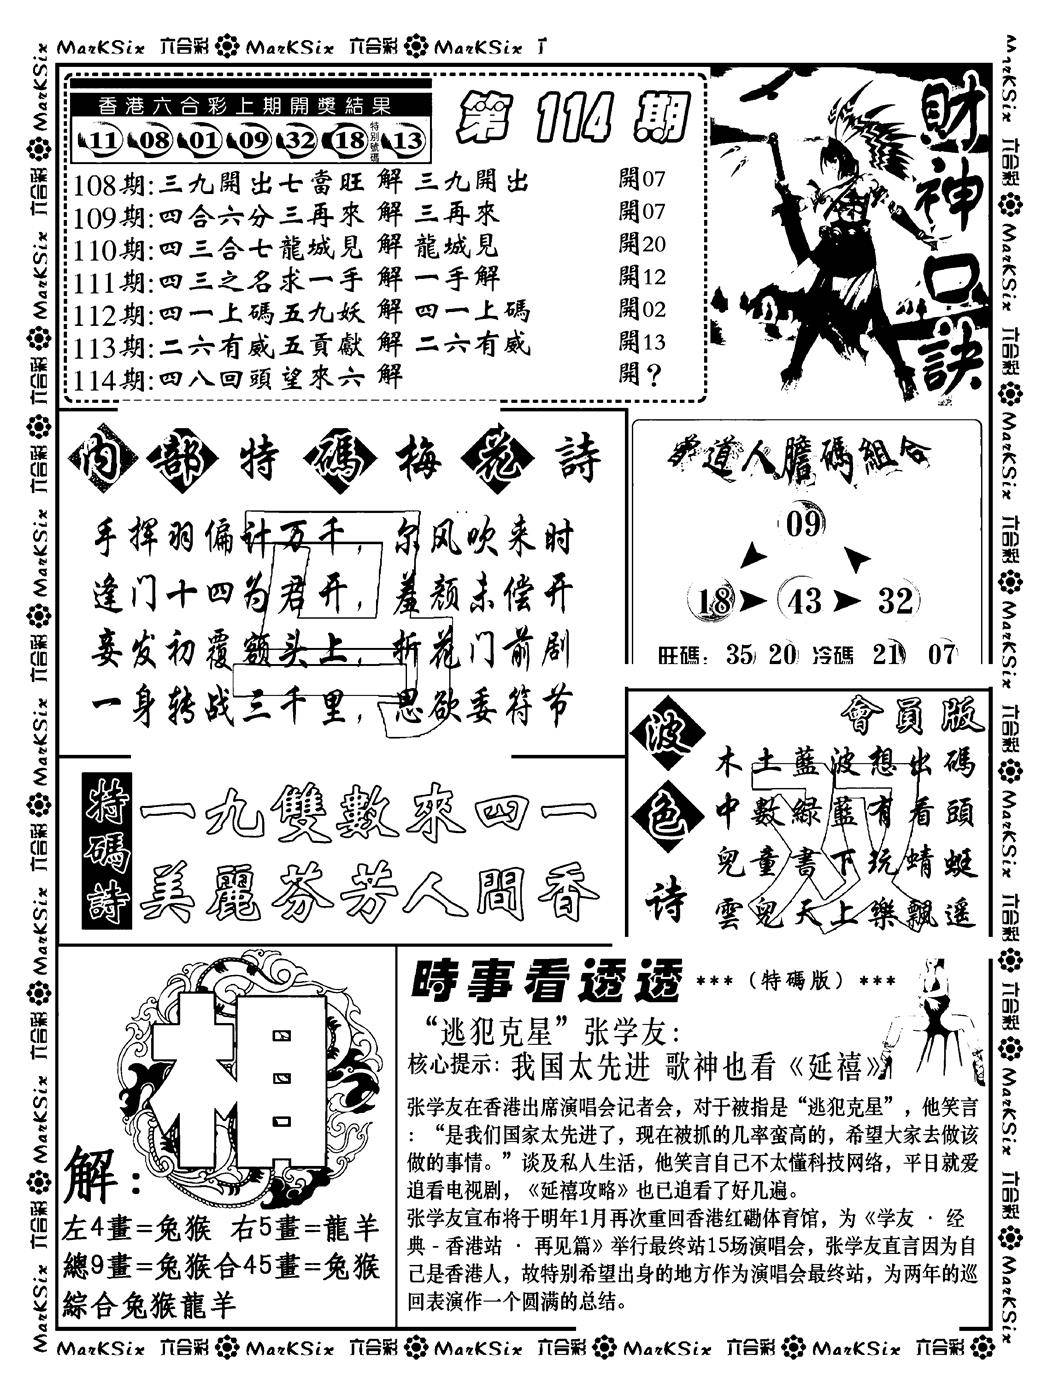 MarKSix 六合彩 MarKSix 六合彩 MarKSix
香港六合彩上期開獎結果
11 08 01 09 32 18 特別號碼 13
第 114 期
108期:三九開出七當旺 解 三九開出 開07
109期:四合六分三再來 解 三再來 開07
110期:四三合七龍城見 解 龍城見 開20
111期:四三之名求一手 解 一手解 開12
112期:四一上碼五九妖 解 四一上碼 開02
113期:二六有威五貢獻 解 二六有威 開13
114期:四八回頭望來六 解 開?
財神口訣
內部特碼梅花詩
手挥羽偏计万千，尔风吹来时
逢门十四为君开，羞颜未偿开
妾发初覆额头上，折花门前剧
一身转战三千里，思欲委符节
道人膽碼組合
09
18 43 32
旺碼: 35 20 冷碼 21 07
特碼詩
一九雙數來四一
美麗芬芳人間香
波色诗
會員版
木土藍波想出碼
中數綠藍有看頭
兒童書下玩蜻蜓
雲兒天上樂飄遥
相
解:
左4畫=兔猴 右5畫=龍羊
總9畫=兔猴合45畫=兔猴
綜合兔猴龍羊
時事看透透 ***（特碼版）***
“逃犯克星”张学友:
核心提示: 我国太先进 歌神也看《延禧》
张学友在香港出席演唱会记者会，对于被指是“逃犯克星”，他笑言
：“是我们国家太先进了，现在被抓的几率蛮高的，希望大家去做该
做的事情。”谈及私人生活，他笑言自己不太懂科技网络，平日就爱
追看电视剧，《延禧攻略》也已追看了好几遍。
张学友宣布将于明年1月再次重回香港红磡体育馆，为《学友 · 经
典-香港站 · 再见篇》举行最终站15场演唱会，张学友直言因为自
己是香港人，故特别希望出身的地方作为演唱会最终站，为两年的巡
回表演作一个圆满的总结。
MarKSix 六合彩 MarKSix 六合彩 MarKSix 六合彩 MarKSix 六合彩 MarKSix 六合彩